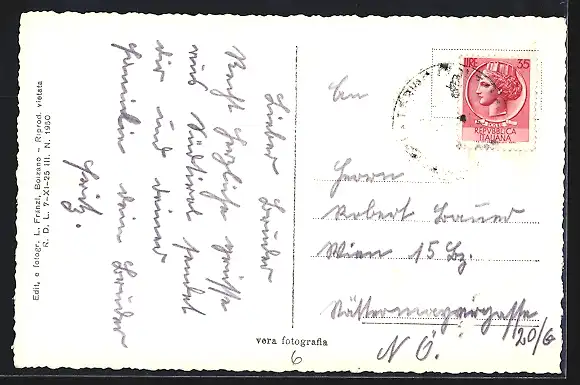 Lieber Bruder
Recht herzliche Grüße
aus Südtirol sendet
dir und deiner
Familie dein Bruder
Fritz.
Edit. e fotogr. L. Fränzl, Bolzano – Riprod. vietata
R. D. L. 7-XI-25 III. N. 1950
An
Herrn
Robert Bauer
Wien 15 Bz.
20/6
N Ö.
LIRE 35
REPVBBLICA
ITALIANA
vera fotografia
6